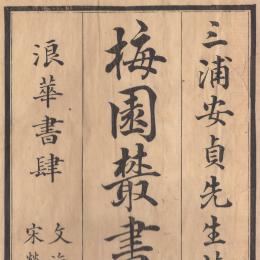 三浦安貞先生
梅園叢書
浪華書肆
文
宋榮